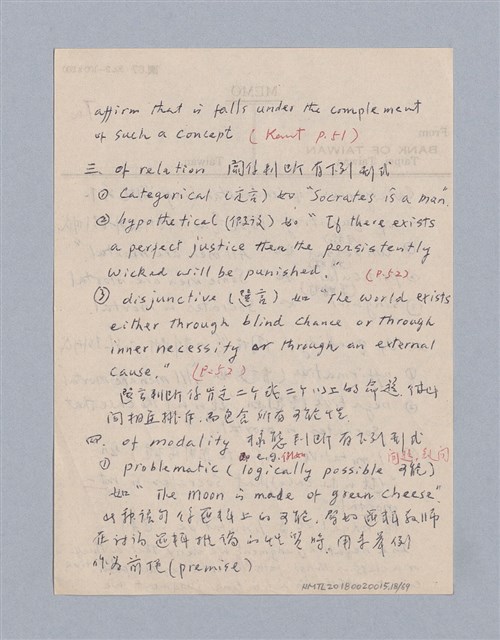 affirm that is falls under the complement
of such a concept (Kant p.51)
三. of relation 關係判断有下列形式
① Categorical (定言) 如 "Socrates is a man".
② hypothetical (假設) 如 "If there exists
a perfect justice then the persistently
wicked will be punished." (p.52)
③ disjunctive (選言) 如 "The world exists
either through blind chance or through
inner necessity or through an external
cause." (p.52)
選言判断係肯定二个或二个以上的命題, 彼此
間相互排斥, 而包含所有可能性.
四. of modality 樣態判断有下列形式
即 e.g. 例如 問題, 疑問
① problematic (logically possible 可能)
如 "The moon is made of green cheese".
此種語句係邏輯上的可能, 譬如邏輯教師
在討論邏輯推論的性質時, 用來舉例
作為前提 (premise)
NMTL20180020015.18/49
MEMO
From
BANK OF TAIWAN